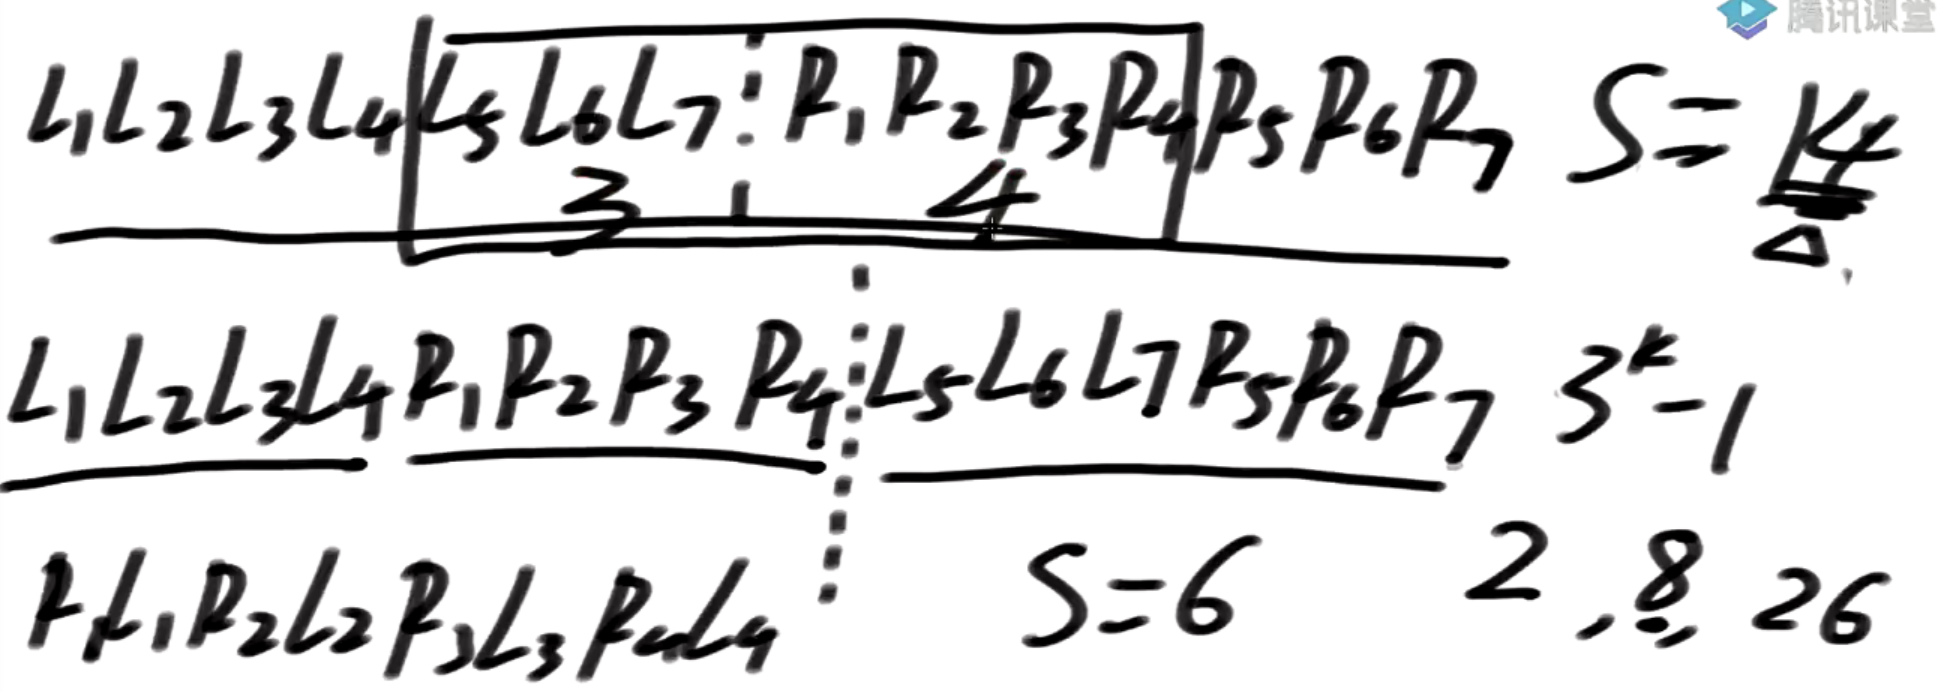 腾讯课堂
L1L2L3L4L5L6L7R1R2R3R4R5R6R7 S=14
3 4
L1L2L3L4R1R2R3R4L5L6L7R5R6R7 3^k-1
R1L1R2L2R3L3R4L4 S=6 2,8,26